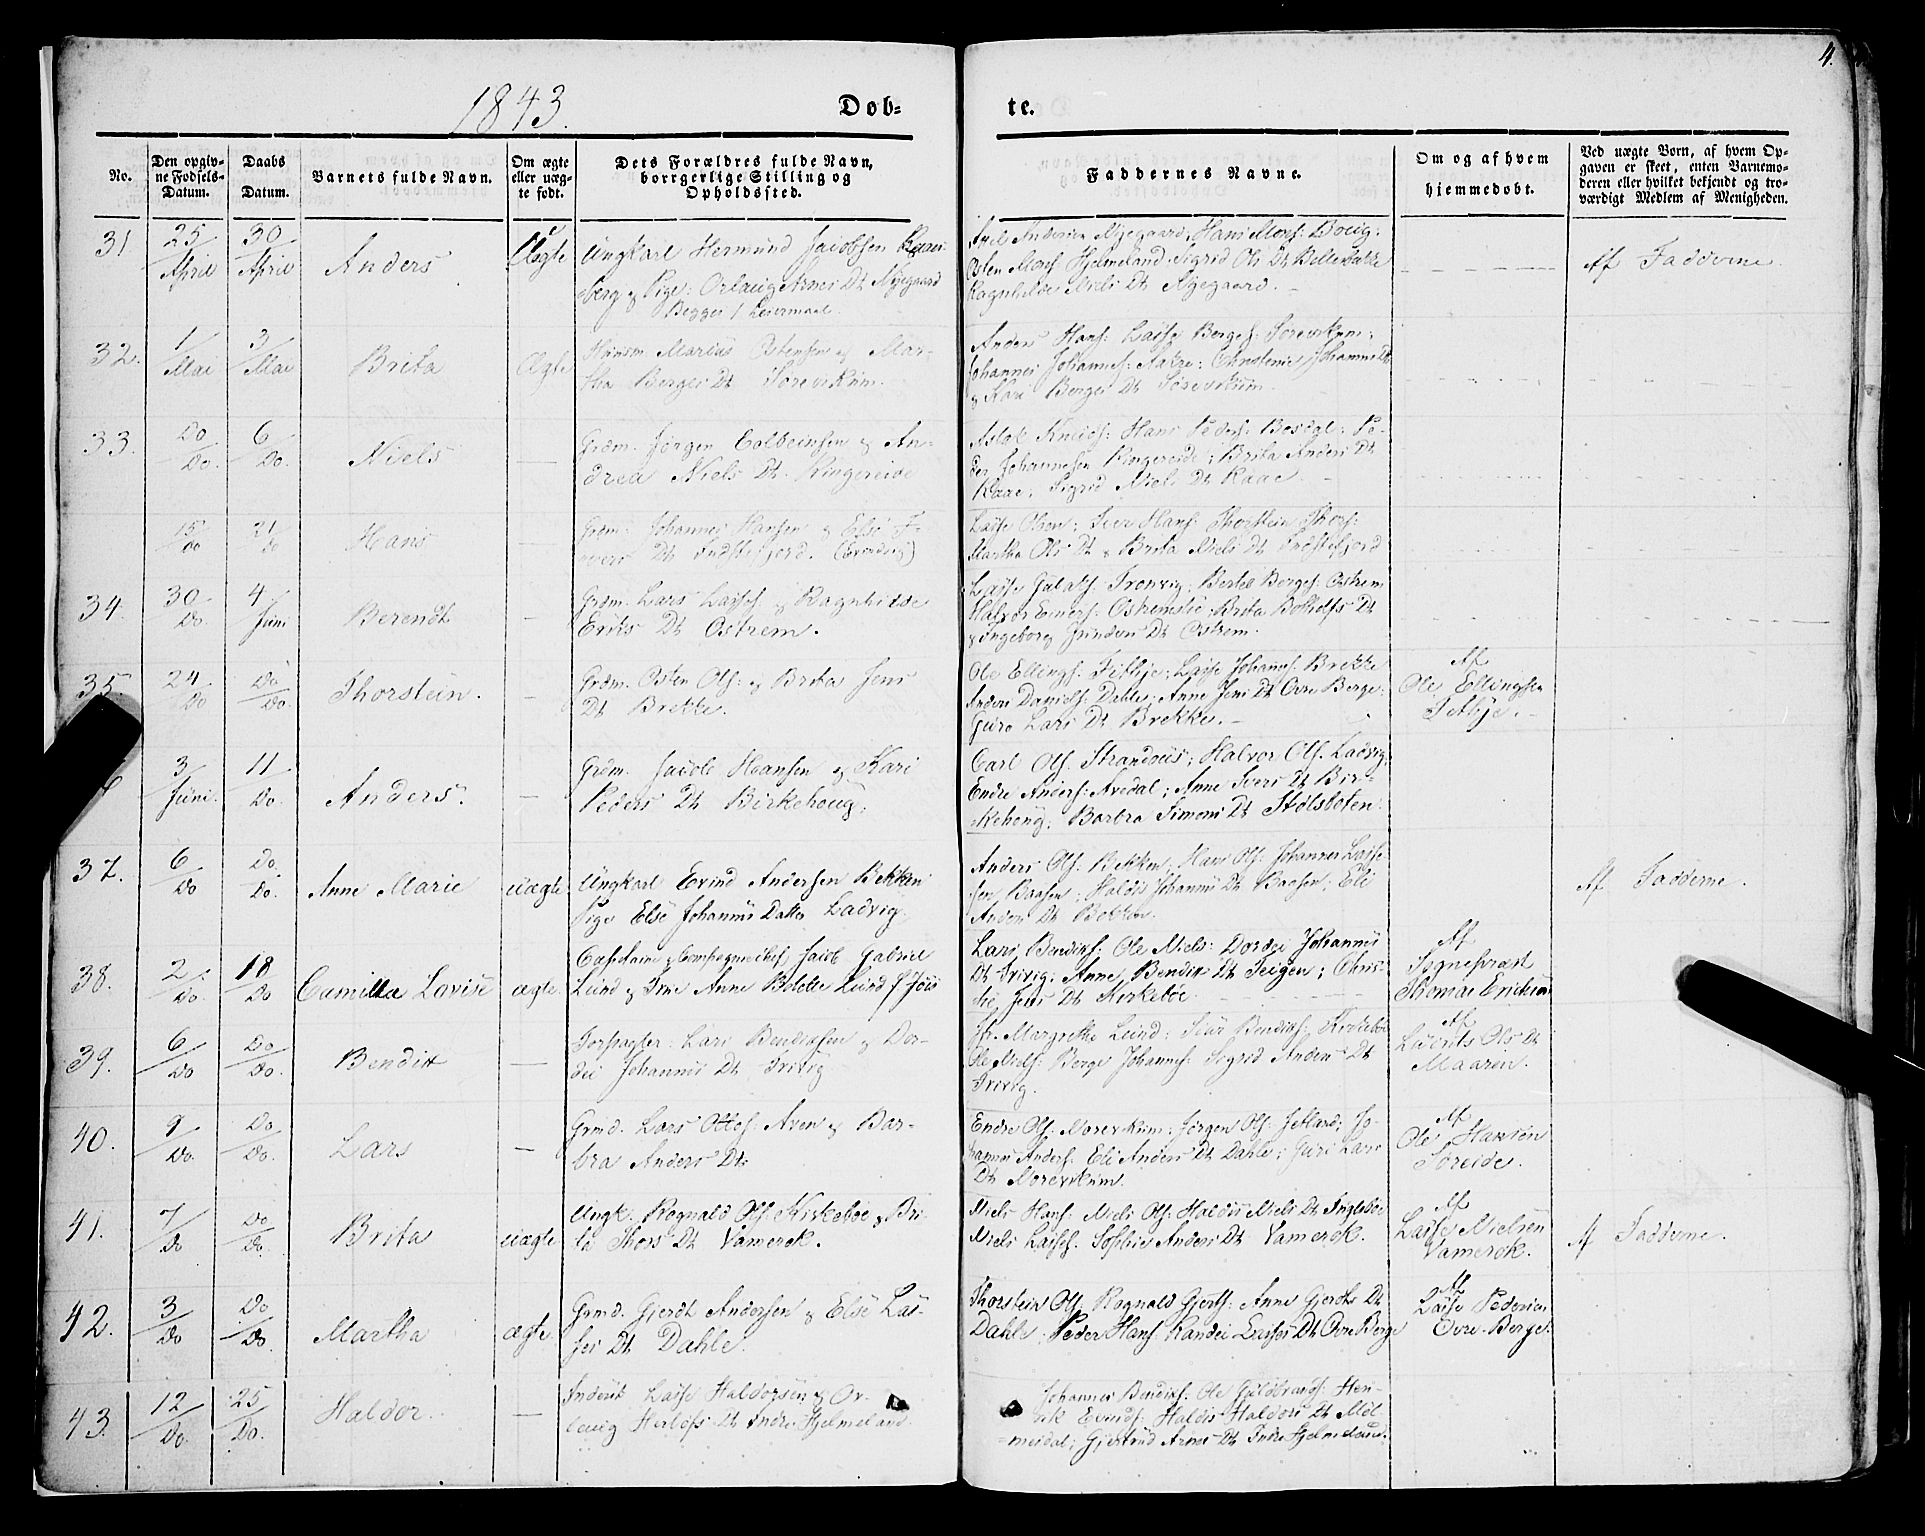 4.
1843.
Døb=
te.
No.
Den opgiv-
ne Fødsels-
Datum.
Daabs
Datum.
Barnets fulde Navn.
Om ægte
eller uæg-
te født.
Dets Forældres fulde Navn,
borrgerlige Stilling og
Opholdssted.
Faddernes Navne.
Om og af hvem
hjemmedøbt.
Ved uægte Børn, af hvem Op-
gaven er skeet, enten Barnemo-
deren eller hvilket bekjendt og tro-
værdigt Medlem af Menigheden.
31
25
April
30
April
Anders
Uægte
Ungkarl Hermund Jacobsen
berg & Pige: Orlaug Arnes Dt Nyegaard
Begges 1 Leiermaal.
Anderson Nyegaard, Hans Mons:
Østen Mons: Hjelmeland, Sigrid Ols Dt
Ragnhilde Niels Dt Nyegaard.
Af Fadderne
32.
1
Mai
3
Mai
Brita
Ægte
Huusm. Marius Østensen & Mar-
tha Berges Dt Sørevikum.
Anders Hans: Lasse Berges: Sørevikum;
Johannes Johannes: Aakre: Christense Johannes Dt
& Kari Berges Dt Sørevikum.
33.
Do
Do.
6
Do.
Niels
Grdm. Jørgen & An-
drea Niels Dt. Ringereide
Aslak Knuds: Hans Peders: Bosdal: Pe-
der Johannesen Ringereide; Brita Anders Dt
Raae; Sigrid Niels Dt Raae.
15
do
21
do
Hans
Grdm. Johannes Hansen & Else I-
vers Dt Indstefjord. (Evindvig)
Lasse Olsen; Iver Hans: Thorstein Thors:
Martha Ols Dt & Brita Niels Dt Indstefjord
34.
30
Do.
4
Juni
Berendt
Grdm. Lars Lasses: & Ragnhilde
Eriks Dt Østrem.
Lasse Tronvig: Bertel Berges: Østrem
Halvor Østremslie, Brita Botholfs Dt
& Ingeborg Dt Østrem.
35.
24
Do
Do
Do.
Thorstein.
Grdm. Østen Ols: & Brita Jens
Dt Brekke.
Ole Ellings: Lasse Johans: Brekke
Anders Daniels: Dahle; Anne Jens Dt Øvre Berge:
Guro Lars Dt Brekke.
Af
Ole Ellingsen
3
Juni.
11
Do.
Anders.
Grdm. Jacob Hansen & Kari
Peders Dt Birkehoug.
Carl Ols: Strandoes; Halvor Ols. Ladvig.
Endre Anders: Avedal; Anne Ivers Dt Bir-
kehoug; Barbra Simons Dt Stølsboten.
37.
6
Do
Do.
Do.
Anne Marie
uægte
Ungkarl Evind Andersen Bekken
Pige Else Johannes Datter Ladvig
Anders Ols: Bekken; Hans Ols: Johannes Lasse-
sen Baasen; Haldis Johannes Dt Baasen; Eli
Anders Dt Bekken.
Af Fadderne.
38.
2
Do.
18
Do
Camilla Lovise
ægte
Capitain & Compagniechef Jacob Gabriel
Lund & Frue Anne Bolette Lund f. Juul
Lars Bendiks: Ole Niels: Dordei Johannes
Dt Trivig; Anne Bendix Dt Teigen; Chris-
tie Jens Dt Kirkebøe.
Af
Sognepræst
Thomas Erichsen
39.
6
Do
Do
Do.
Bendix
Forpagter: Lars Bendixsen & Dor-
dei Johannes Dt Trivig
Fr. Margrethe Lund: Siur Bendiks: Kirkebøe
Ole Niels: Berge Johannes: Sigrid Anders Dt
Trivig.
Af
Ols Dt
Maaren.
40.
9
Do.
Do
Do.
Lars
Grmd. Lars Ottes: Aven & Bar-
bra Anders Dt:
Endre Ols: Norevikum; Jørgen Ols: Jetland; Jo-
hannes Anders: Eli Anders Dt Dahle; Guri Lars
Dt Norevikum.
Af
Ole Hansen
Søreide.
41.
7
Do
Do
Do.
Brita
uægte
Ungk. Ragnald Ols: Kirkeboe & Bri-
ta Thors Dt Vamerok.
Niels Hans: Niels Ols: Haldis Niels Dt Ingleboe
Niels Lasses. Sophie Anders Dt Vamerok.
Af
Lasse Nielsen
Vamerok.
Af Fadderne.
42.
3
Do
Do
Do
Martha
ægte
Grmd. Gjerdt Andersen & Else Las-
ses Dt Dahle.
Thorstein Ols, Ragnald Gjerts: Anne Gjerdts Dt
Dahle. Peder Hans: Randei Lasses Dt Øvre Berge
Af
Lasse Pedersen
Øvre Berge.
43.
12
Do.
25
Do.
Haldor.
Inderst Lasse Haldorsen & Or-
laug Herlofs Dt Indre Hjelmeland
Johannes Bendiks: Ole Guldbrands: Hen-
rik Evinds: Haldis Haldors Dt Møl-
mesdal; Gjertrud Arnes Dt Indre Hjelmeland.